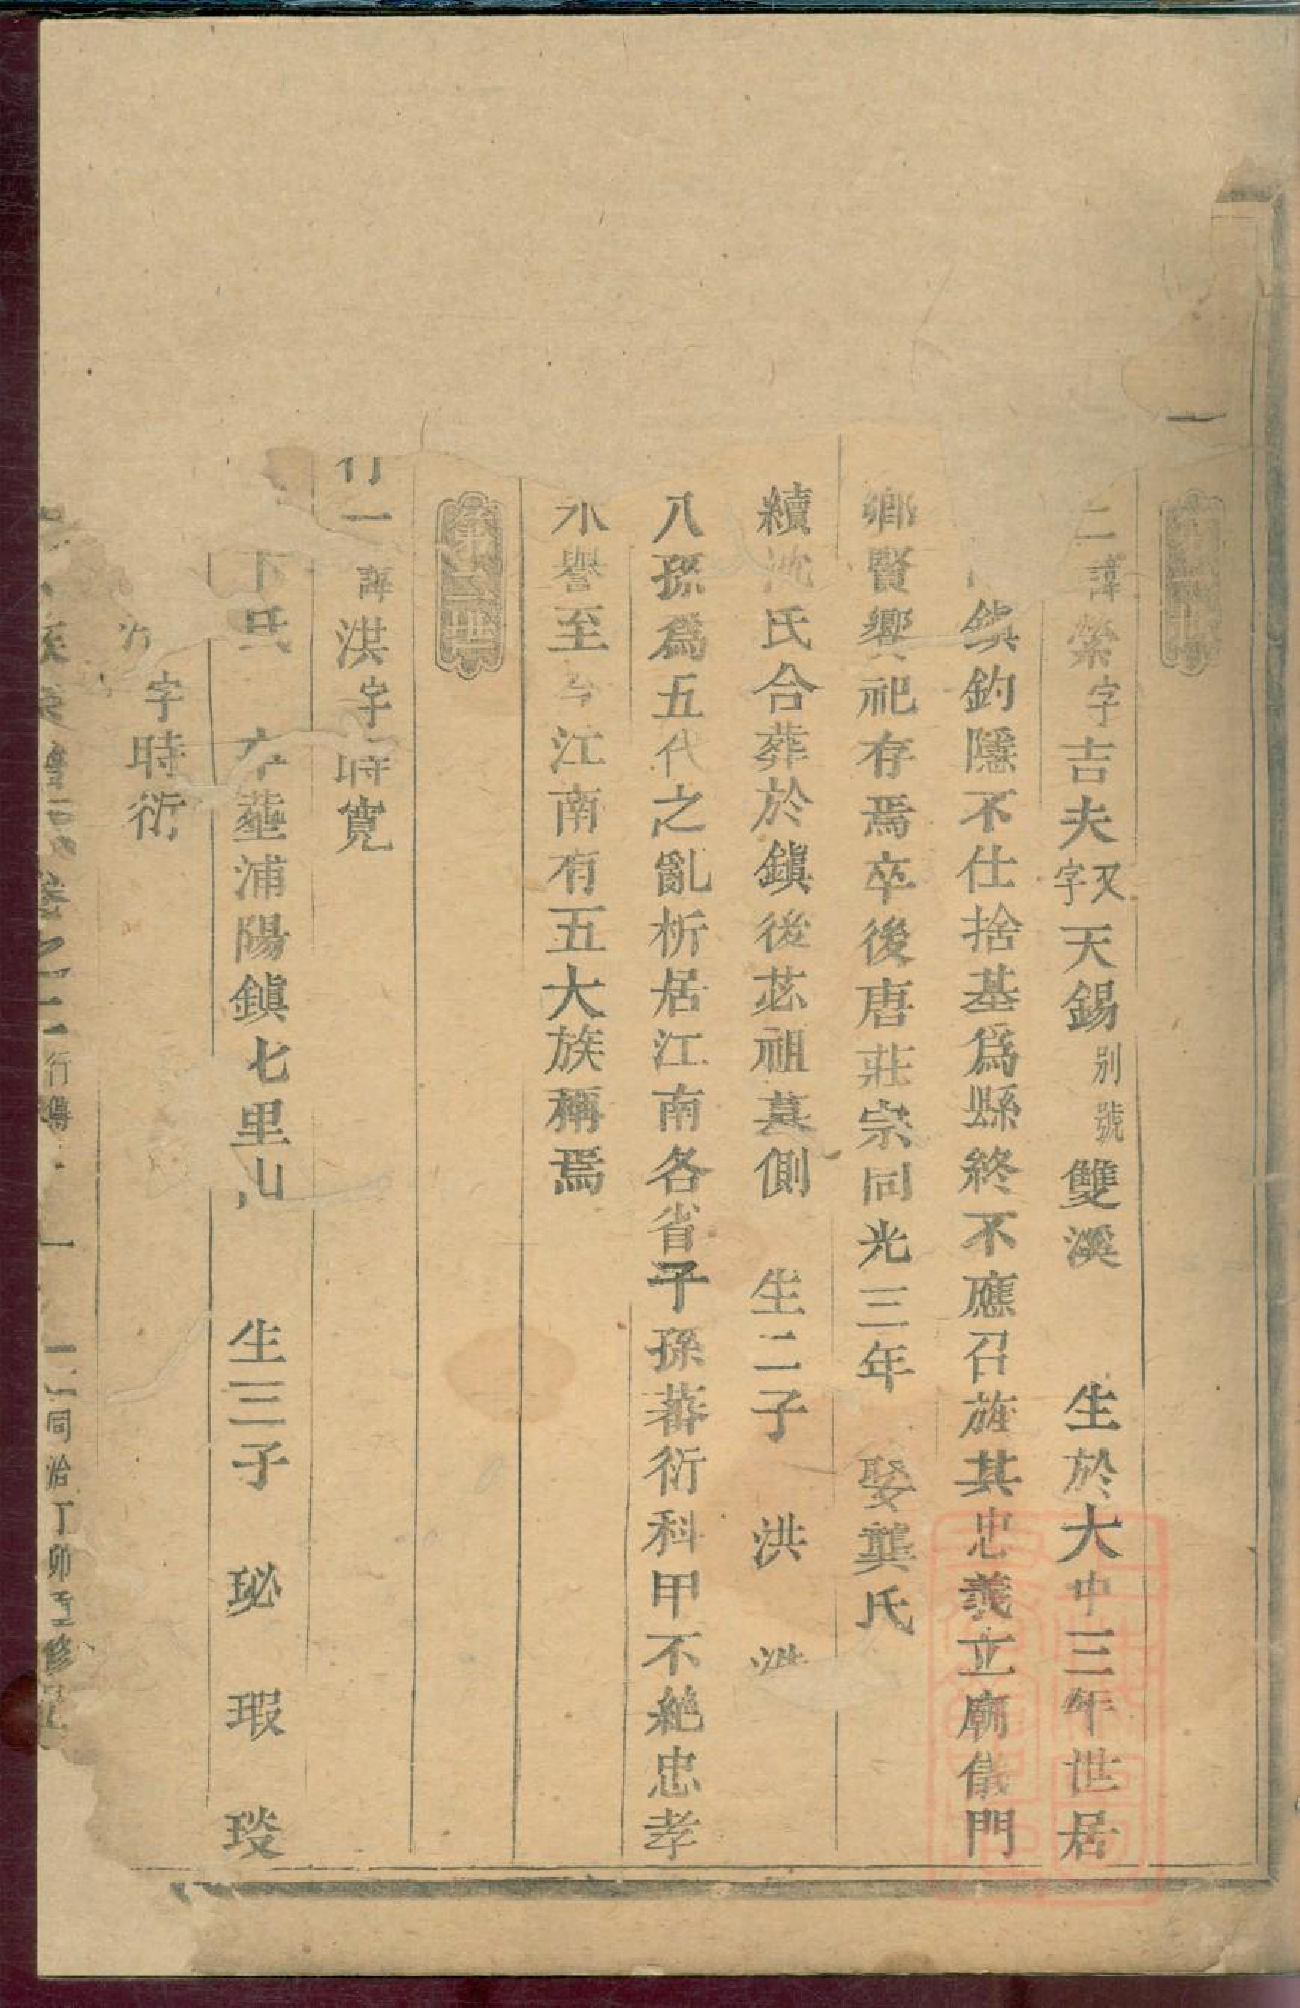 一
二諱縈字吉夫又字天錫別號雙溪 生於大中三年世居
鎮釣隱不仕捨基為縣終不應召旌其忠義立廟儀門
鄉賢響祀存焉卒後唐莊宗同光三年 娶龔氏
續沈氏合葬於鎮後苾祖墓側 生二子 洪
八孫爲五代之亂析居江南各省子孫蕃衍科甲不絶忠孝
譽至今江南有五大族稱焉
第三世
行一諱洪字時寬
氏 卒塟浦陽鎮七里山 生三子 珌 瑕 琰
字時衍
卷之二 行傳 一 同治丁卯重修